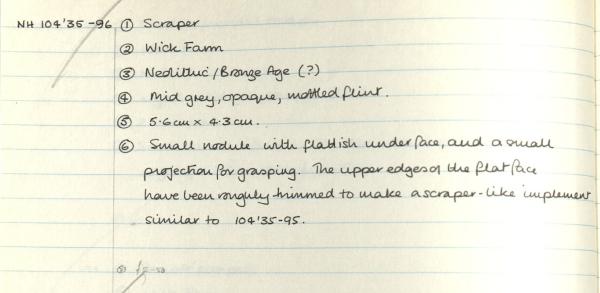 NH 104'35-96 ① Scraper
② Wick Farm
③ Neolithic/Bronze Age (?)
④ Mid grey, opaque, mottled flint.
⑤ 5.6cm x 4.3cm.
⑥ Small nodule with flattish underface, and a small
projection for grasping. The upper edges of the flat face
have been roughly trimmed to make a scraper-like implement
similar to 104'35-95.